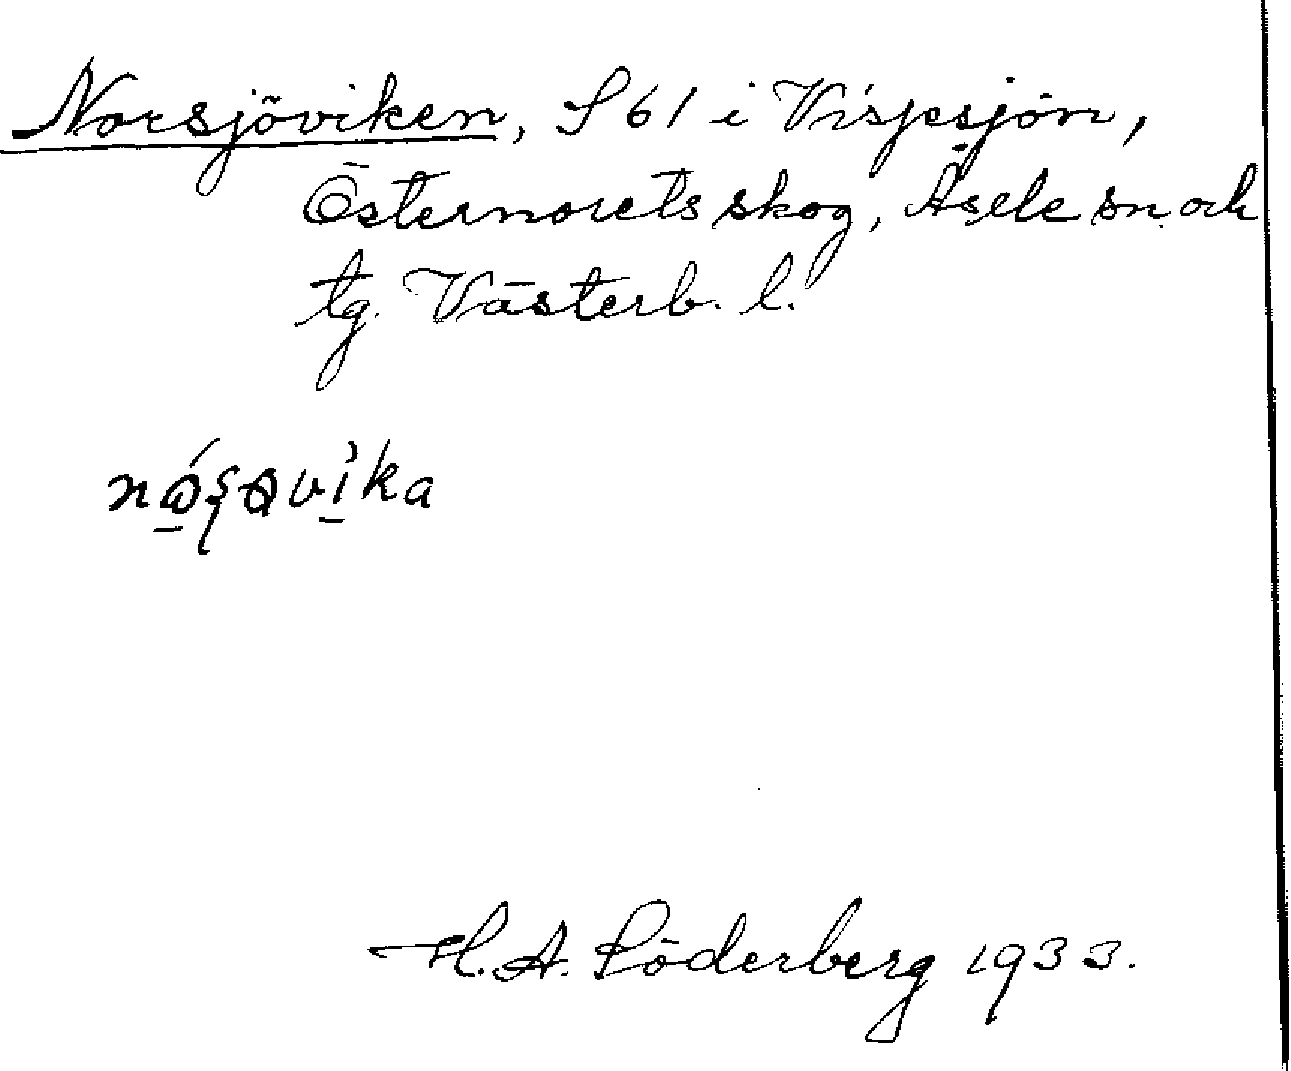 Norsjöviken, S 61 i Vispsjön,
Östernorets skog, Åsele sn och
tg. Västerb. l.
nǻʂavìka
H. A. Söderberg 1933.